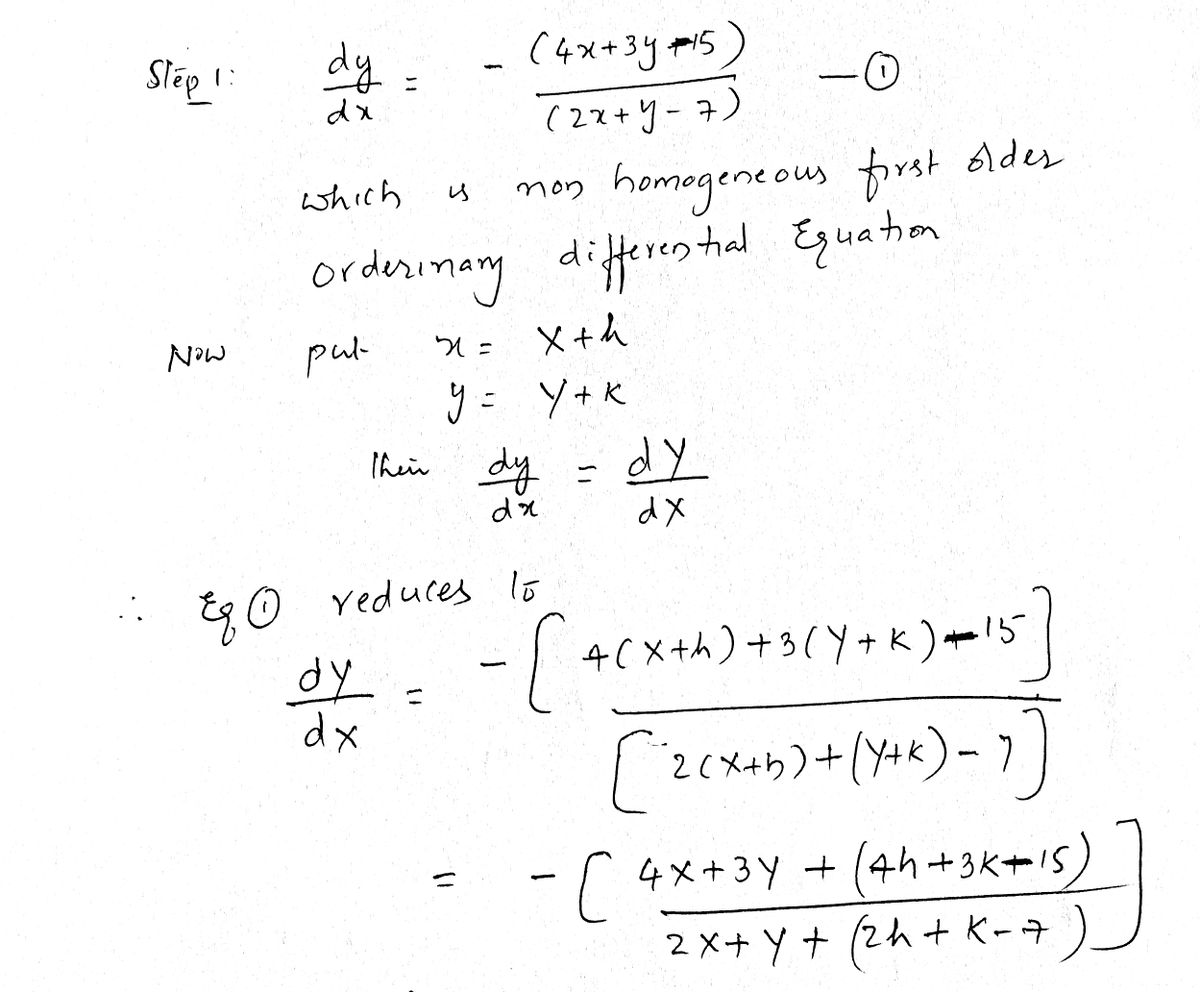 Step 1: dy/dx = - (4x+3y-15)/(2x+y-7) —①
which is non homogeneous first order
orderinary differential Equation
Now put x = X+h
y = Y+K
Then dy/dx = dY/dX
∴ Eq ① reduces to
dY/dX = -[4(X+h)+3(Y+K)-15]/[2(X+h)+(Y+K)-7]
= -[4X+3Y+(4h+3K-15)/2X+Y+(2h+K-7)]